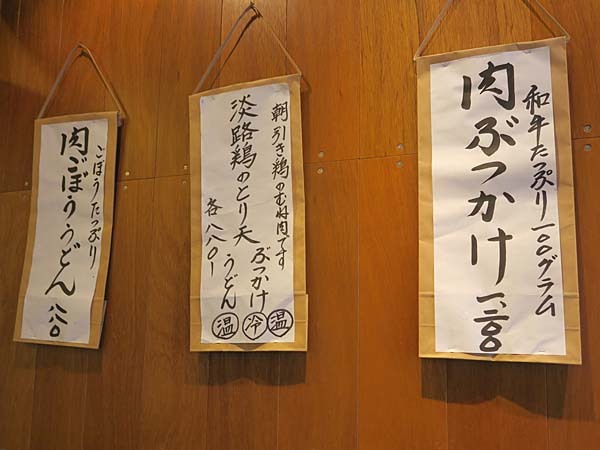 和牛たっぷり一〇〇グラム
肉ぶっかけ
朝引き鶏のむね肉です
淡路鶏のとり天
ぶっかけ 冷 温
うどん 温
各八八〇ー
ごぼうたっぷり
肉ごぼううどん 八八〇